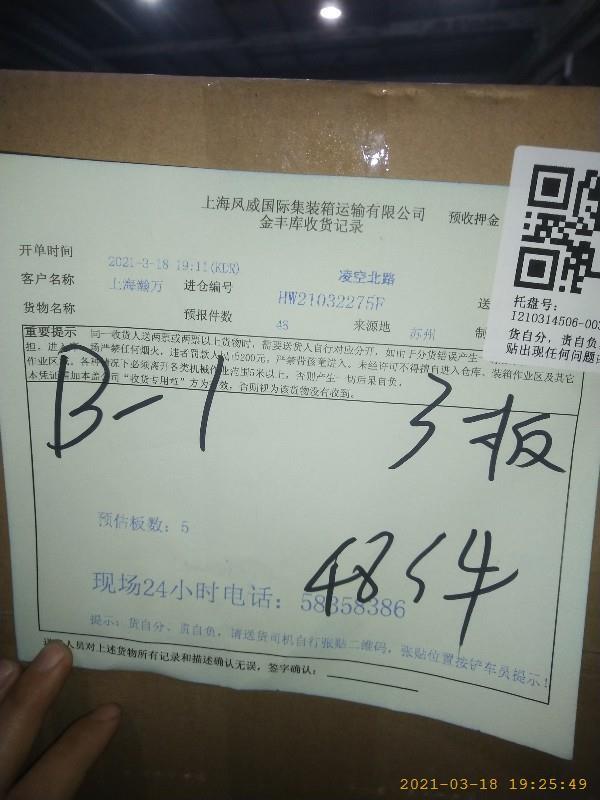 上海凤威国际集装箱运输有限公司
金丰库收货记录
预收押金
开单时间 2021-3-18 19:11(KDR) 凌空北路
客户名称 上海瀚万 进仓编号 HW21032275F 送
货物名称 预报件数 48 来源地 苏州 制
托盘号:
I210314506-003
货自分，责自负
贴出现任何问题
重要提示 同一收货人送两票或两票以上货物时，需要送货人自行对应分开，如由于分货错误产生
担，进入 场严禁任何烟火，违者罚款人民币200元，严禁背孩童进入，未经许可不得擅自进入仓库、装箱作业区及其它
作业区域，各种情况下必须离开各类机械作业范围5米以上，否则产生一切后果自负。
本凭证需加本盖公司“收货专用章”方为有效，否则视为该货物没有收到。
B-1 3板
预估板数：5
48件
现场24小时电话：58358386
提示：货自分、责自负，请送货司机自行张贴二维码，张贴位置按铲车员提示！
送货人员对上述货物所有记录和描述确认无误，签字确认：
2021-03-18 19:25:49